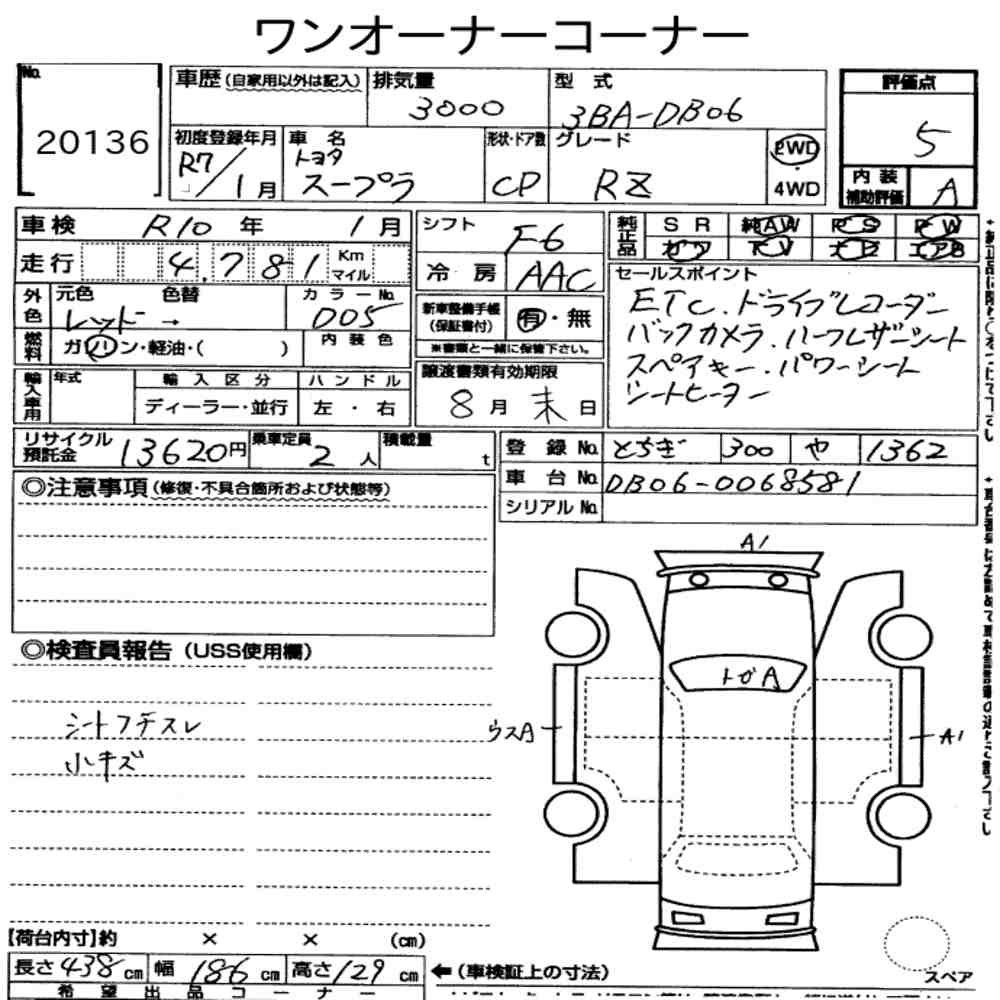 ワンオーナーコーナー
No. 20136
車歴 (自家用以外は記入) 排気量 3000 型式 3BA-DB06
評価点 5
内装補助評価 A
初度登録年月 R7/1月 車名 トヨタ スープラ 形状・ドア数 CP グレード RZ 2WD 4WD
車検 R10年 1月 シフト F6
純正品 SR 純AW PS PW
カワ TV ナビ エアB
走行 4,781 Km マイル 冷房 AAC
外色 元色 レッド → 色替 カラーNo. D05
燃料 ガソリン・軽油・( ) 内装色
新車整備手帳 (保証書付) 有・無
※書類と一緒に保管下さい。
セールスポイント
ETC.ドライブレコーダー
バックカメラ.ハーフレザーシート
スペアキー.パワーシート
シートヒーター
輸入車用 年式 輸入区分 ハンドル
ディーラー・並行 左・右
譲渡書類有効期限
8月末日
リサイクル預託金 13620円 乗車定員 2人 積載量 t
登録No. とちぎ 300 や 1362
車台No. DB06-0068581
シリアルNo.
◎注意事項 (修復・不具合箇所および状態等)
◎検査員報告 (USS使用欄)
シートフチスレ
小キズ
A1
トガA
ウスA
A1
スペア
【荷台内寸】約 × × (cm)
長さ 438 cm 幅 186 cm 高さ 129 cm
←(車検証上の寸法)
希望出品コーナー